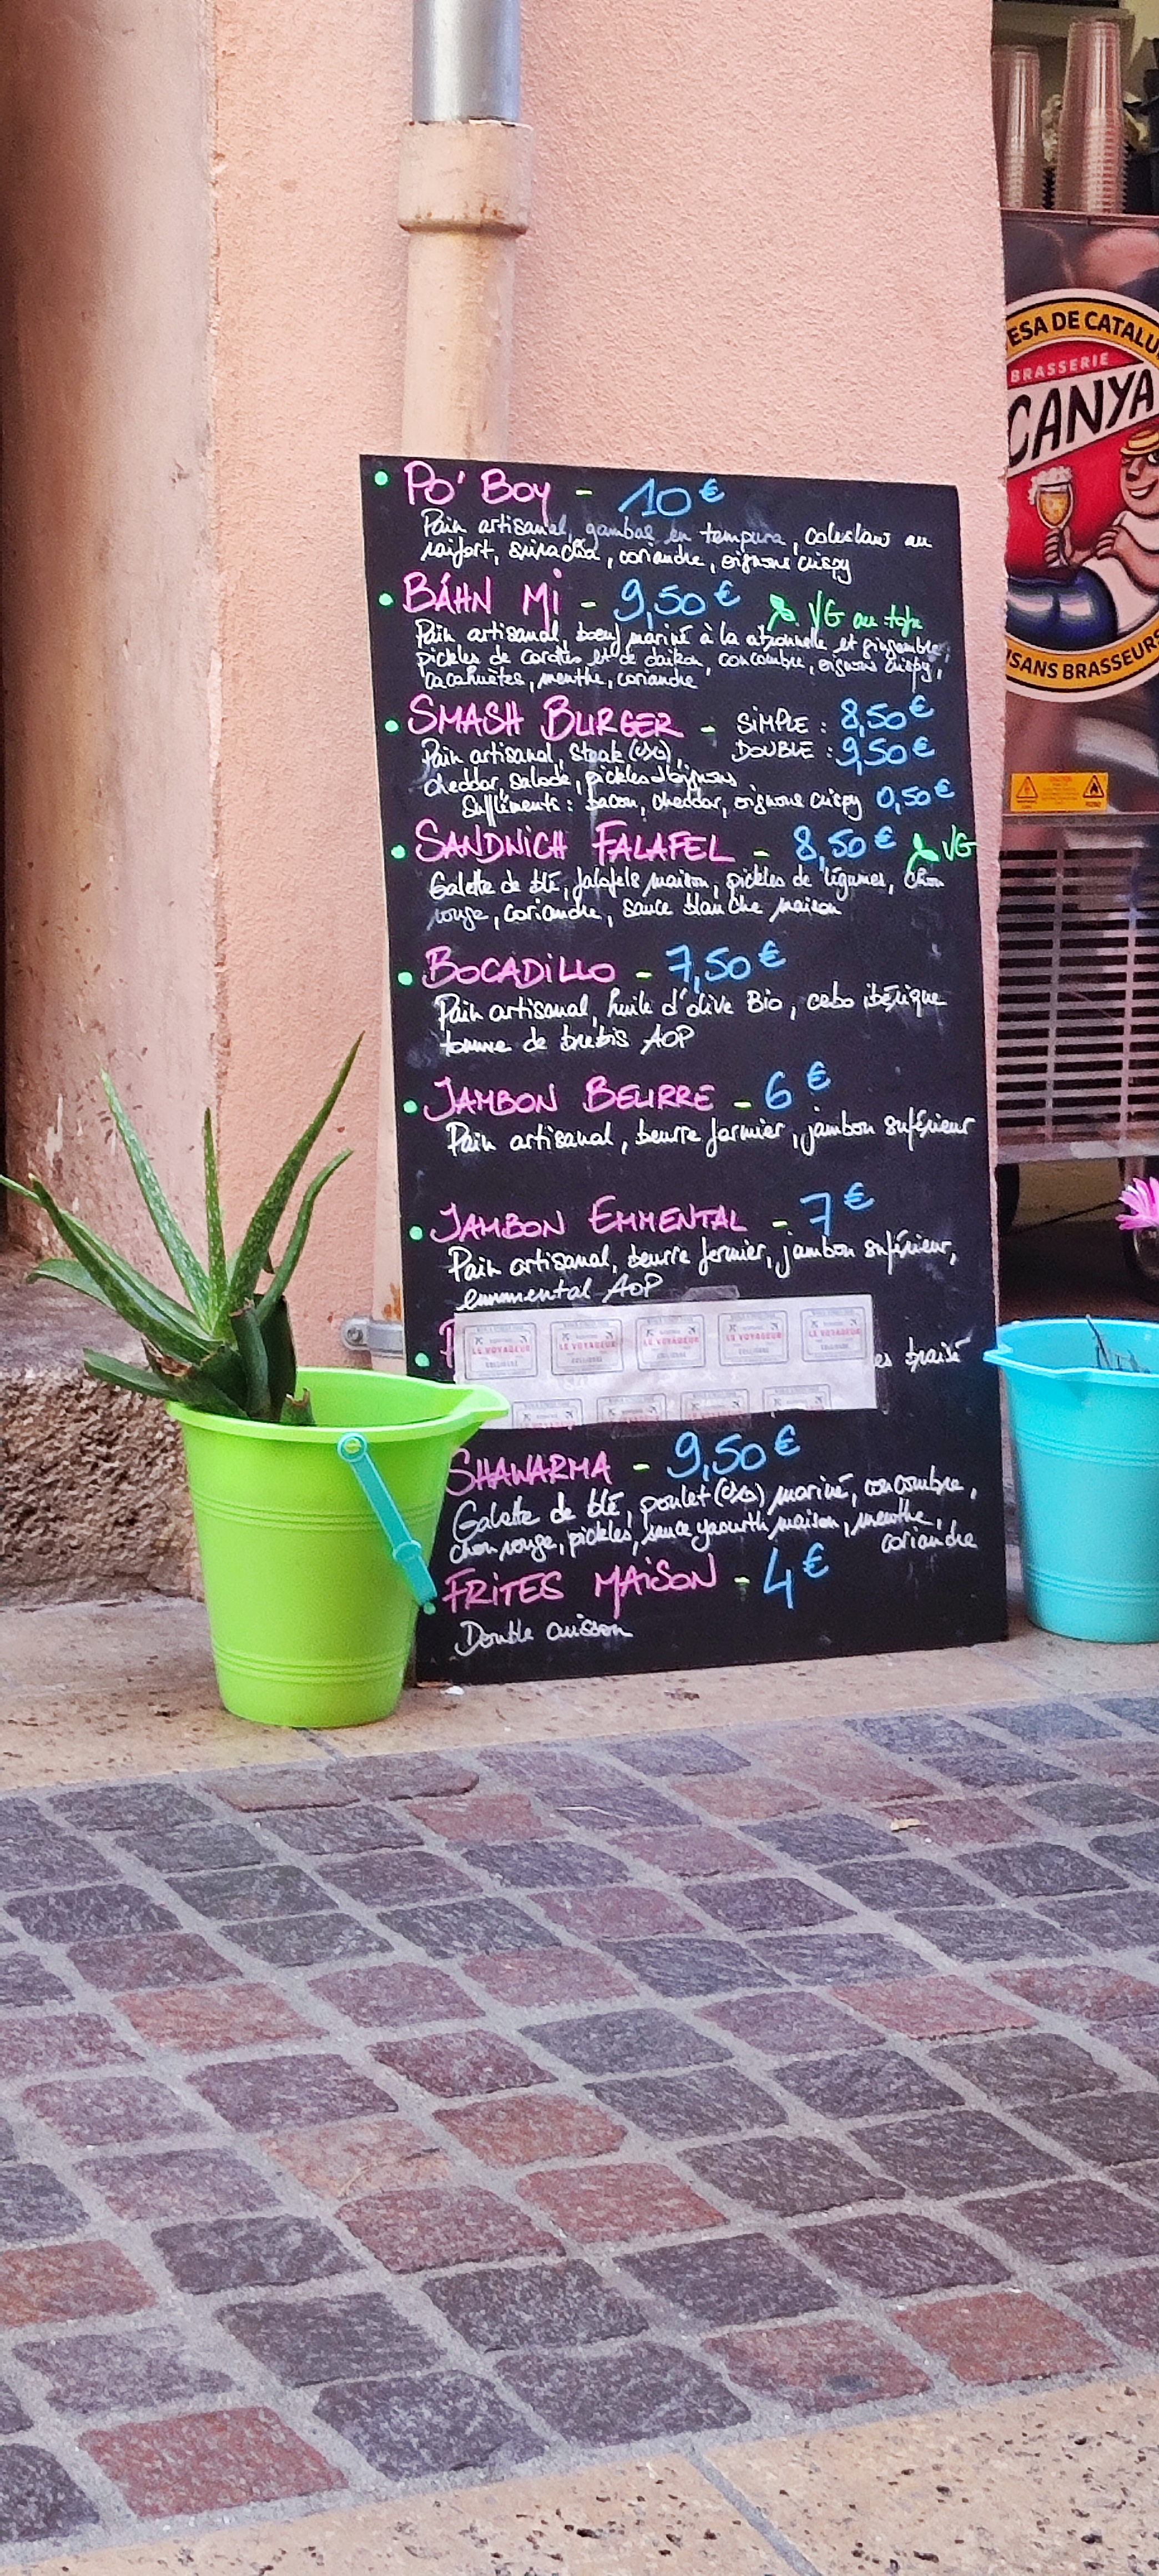 Po' Boy - 10 €
Pain artisanal, gambas en tempura, coleslaw au
raifort, sriracha, coriandre, oignons crispy
BÁHN Mi - 9,50 € VG au tofu
Pain artisanal, boeuf mariné à la citronnelle et gingembre,
pickles de carottes et de daikon, concombre, oignons crispy,
cacahuètes, menthe, coriandre
SMASH BURGER - SIMPLE : 8,50 €
Pain artisanal, steak (VBF), DOUBLE : 9,50 €
cheddar, salade, pickles d'oignons
Suppléments : bacon, cheddar, oignons crispy 0,50 €
SANDWICH FALAFEL - 8,50 € VG
Galette de blé, falafels maison, pickles de légumes, chou
rouge, coriandre, sauce blanche maison
BOCADILLO - 7,50 €
Pain artisanal, huile d'olive Bio, cebo ibérique
tomme de brebis AOP
JAMBON BEURRE - 6 €
Pain artisanal, beurre fermier, jambon supérieur
JAMBON EMMENTAL - 7 €
Pain artisanal, beurre fermier, jambon supérieur,
emmental AOP
LE VOYAGEUR LE VOYAGEUR LE VOYAGEUR LE VOYAGEUR LE VOYAGEUR
braisé
SHAWARMA - 9,50 €
Galette de blé, poulet mariné, concombre,
chou rouge, pickles, sauce yaourth maison, menthe,
coriandre
FRITES MAISON - 4 €
Double cuisson
ESA DE CATALU
BRASSERIE
CANYA
ISANS BRASSEURS